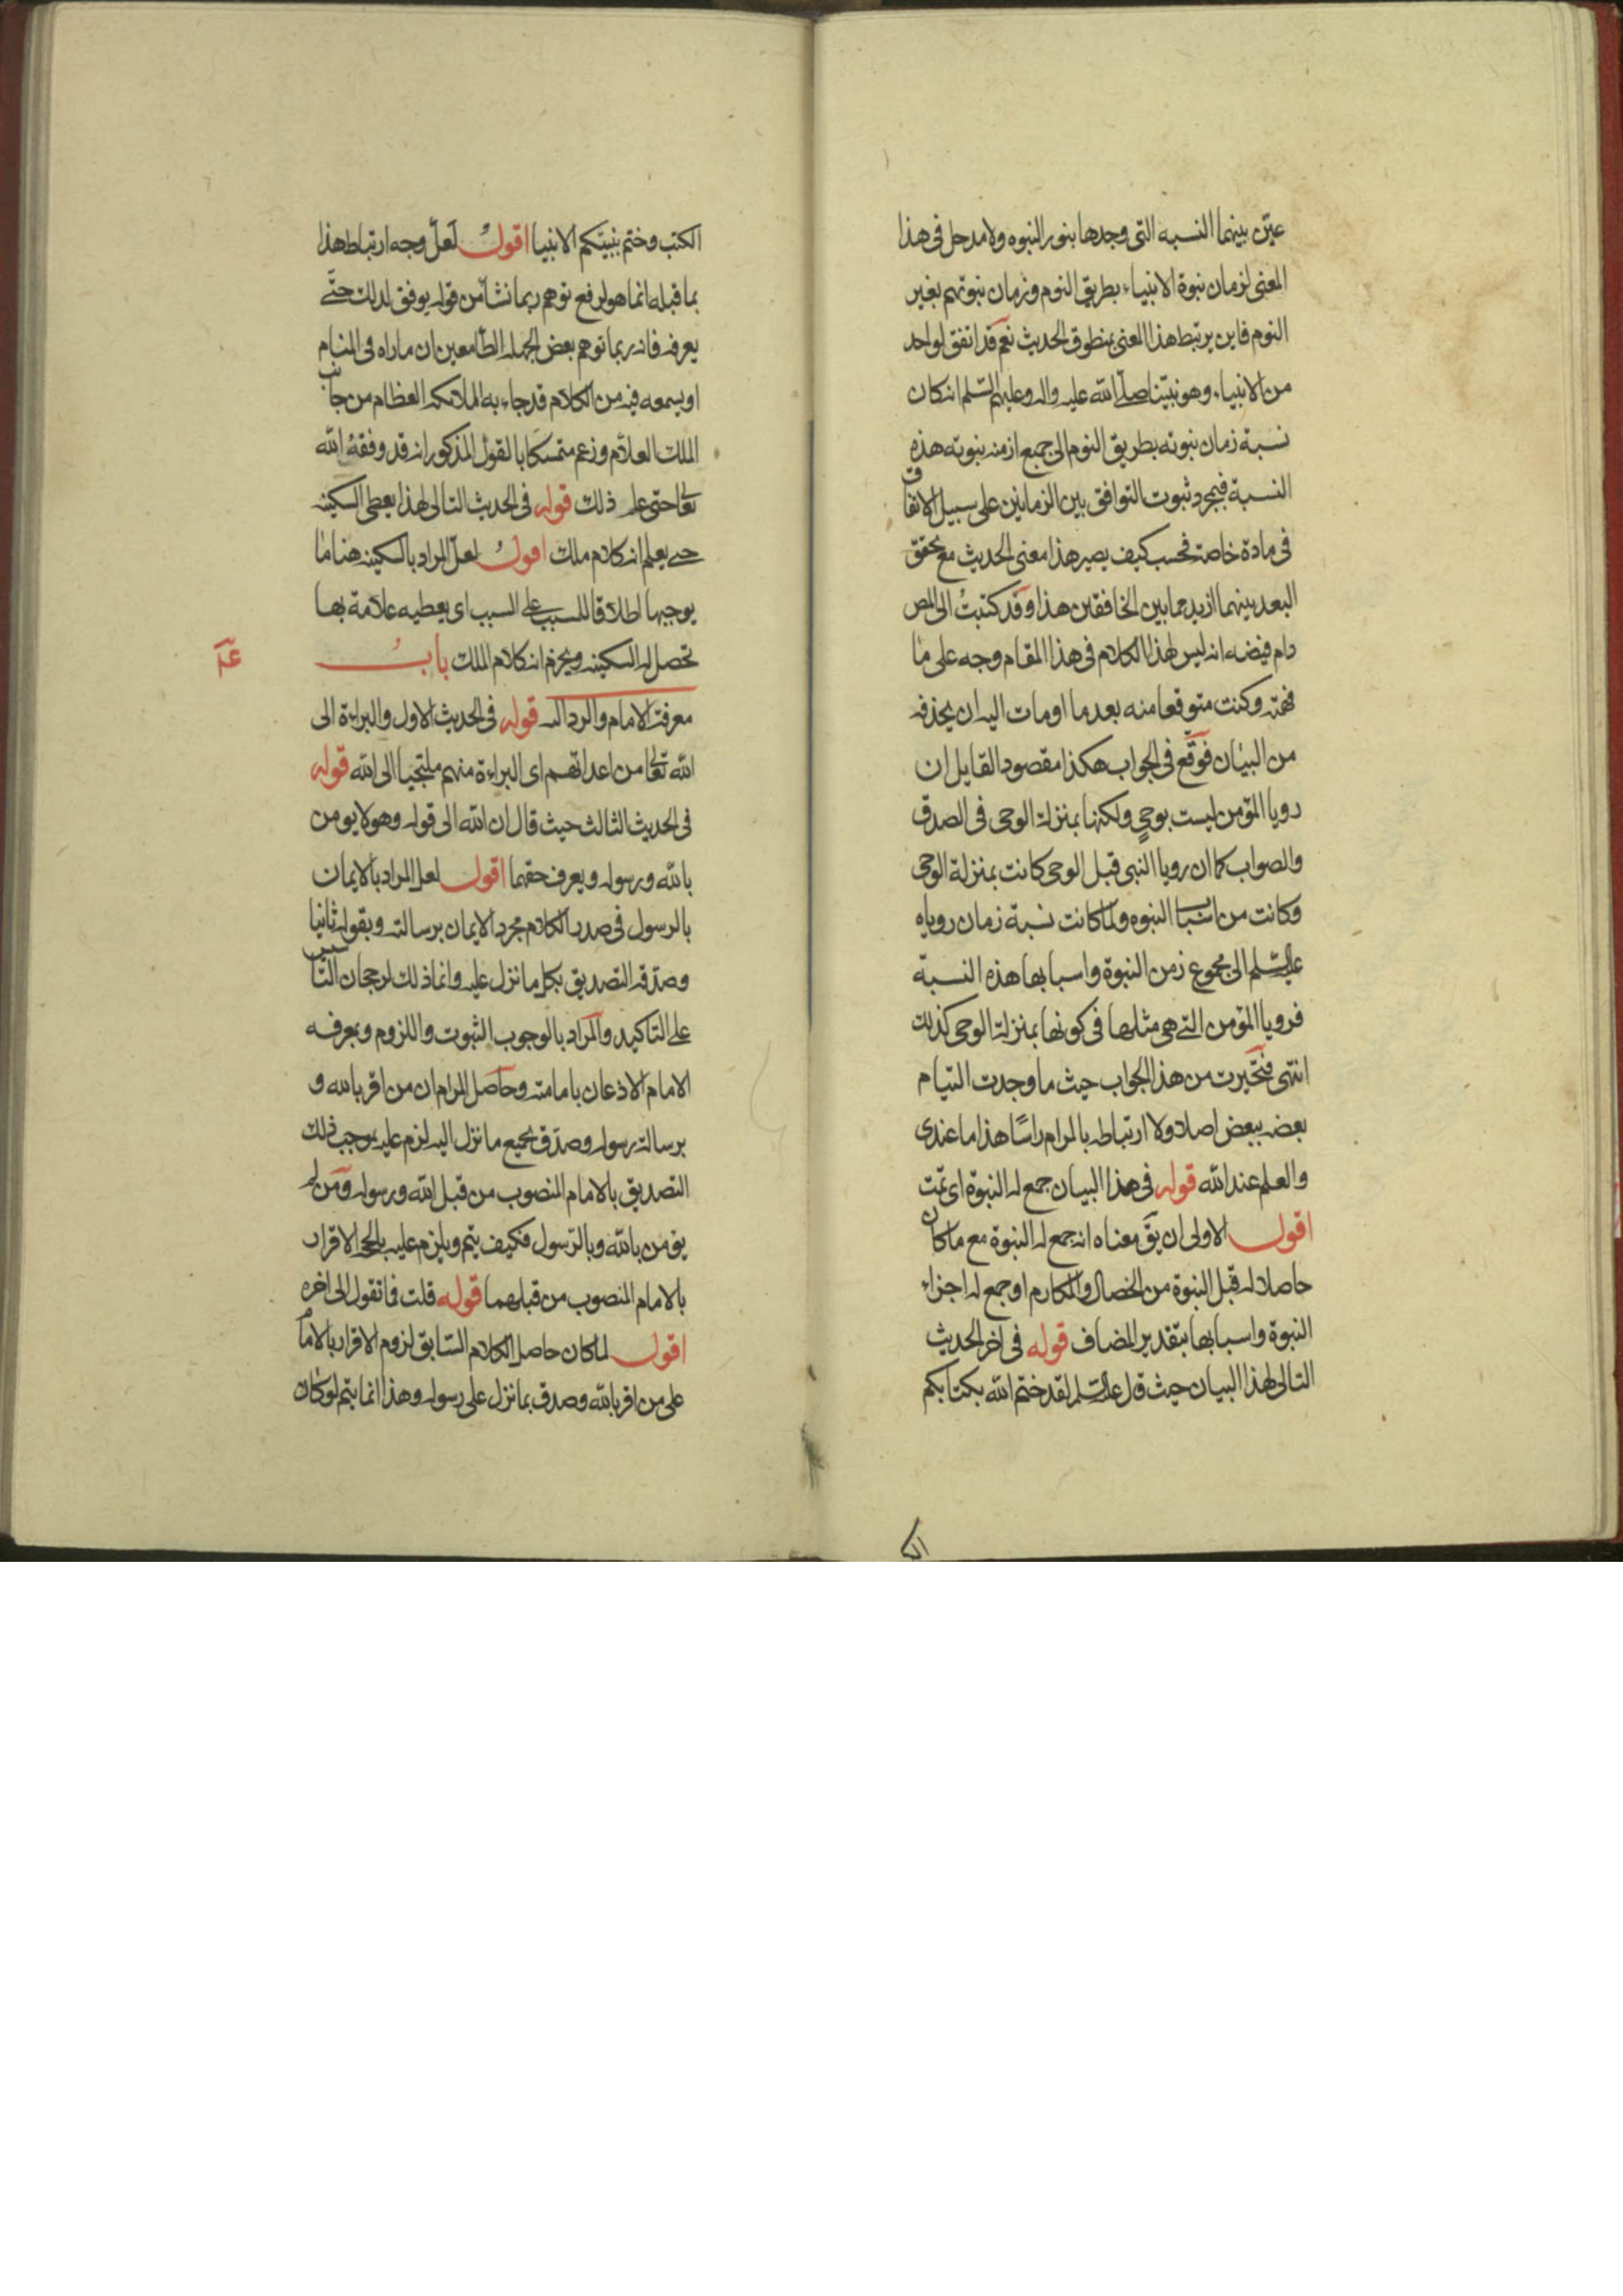 عيّن بينهما النسبه التى وجدها بنور النبوه ولا مدخل فى هذا
المعنى لزمان نبوة الانبياء بطريق النوم وزمان نبوتهم بغير
النوم فاين يرتبط هذا المعنى بمنطوق الحديث نعم قد اتفق لواحد
من الانبياء وهو نبيّنا صلّى الله عليه واله وعليهم السّلم ان كان
نسبة زمان نبوته بطريق النوم الى جميع ازمنه نبوته هذه
النسبة فبمجرد ثبوت التوافق بين الزمانين على سبيل الاتفاق
فى مادة خاصة فحسب كيف يصير هذا معنى الحديث مع تحقق
البعد بينهما ازيد مما بين الخافقين هذا وقد كتبتُ الى المص
دام فيضه انه ليس لهذا الكلام فى هذا المقام وجه على ما
فهمته وكنت متوقعا منه بعد ما اومات اليه ان يحذفه
من البيان فوقّع فى الجواب هكذا مقصود القايل ان
رويا المؤمن ليست بوحيٍ ولكنها بمنزلة الوحى فى الصدق
والصواب كما ان رويا النبى قبل الوحى كانت بمنزلة الوحى
وكانت من اسباب النبوه ولما كانت نسبة زمان روياه
عليه السّلم الى مجموع زمن النبوة واسبابها هذه النسبة
فرويا المؤمن التى هى مثلها فى كونها بمنزلة الوحى كذلك
انتهى فتحيرت من هذا الجواب حيث ما وجدت التيام
بعضه ببعض اصلا ولا ارتباطه بالمرام راسًا هذا ما عندى
والعلم عند الله قوله فى هذا البيان جمع له النبوة اى تمت
اقول الاولى ان يقَ معناه انه جمع له النبوة مع ما كان
حاصلا له قبل النبوة من الخصال والمكارم او جمع له اجزاء
النبوة واسبابها بتقدير المضاف قوله فى اخر الحديث
التالى لهذا البيان حيث قال عليه السّلم لقد ختم الله بكتابكم
الكتب وختم بنبيّكم الانبيا اقول لعلّ وجه ارتباط هذا
بما قبله انما هو لرفع توهم ربما نشأ من قوله يوفق لذلك حتّى
يعرفه فانه ربما توهم بعض الجهلة الطّامعين ان ما راه فى المنام
او يسمعه فيه من الكلام قد جاء به الملائكه العظام من جانب
الملك العلاّم وزعم متمسكا بالقول المذكور انه قد وفقهُ الله
تعالى حتى علم ذلك قوله فى الحديث التالى لهذا يعطى السكينه
حتى يعلم انه كلام ملك اقول لعلّ المراد بالسكينه هنا ما
يوجبها اطلاقا للمسبب على السبب اى يعطيه علامة بها
تحصل له السكينه ويجزم انه كلام الملك باب
معرفة الامام والرد اليه قوله فى الحديث الاول والبراءة الى
الله تعالى من اعدائهم اى البراءة منهم ملتجيا الى الله قوله
فى الحديث الثالث حيث قال ان الله الى قوله وهو لا يومن
بالله ورسوله ويعرف حقهما اقول لعل المراد بالايمان
بالرسول فى صدر الكلام مجرد الايمان برسالته وبقوله ثانيا
وصدّقه التصديق بكل ما نزل عليه وانما ذلك لرجحان التاسيس
على التاكيد والمراد بالوجوب الثبوت واللزوم وبمعرفه
الامام الاذعان بامامته وحاصل المرام ان من اقر بالله و
برسالة رسوله وصدّق بجميع ما نزل اليه لزم عليه بموجب ذلك
التصديق بالامام المنصوب من قبل الله ورسوله ومن لم
يؤمن بالله وبالرّسول فكيف يتم ويلزم عليه الاقرار
بالامام المنصوب من قبلهما قوله قلت فما تقول الى اخره
اقول لما كان حاصل الكلام السّابق لزوم الاقرار بالامام
على من اقر بالله وصدق بما نزل على رسوله وهذا انما يتم لو كان